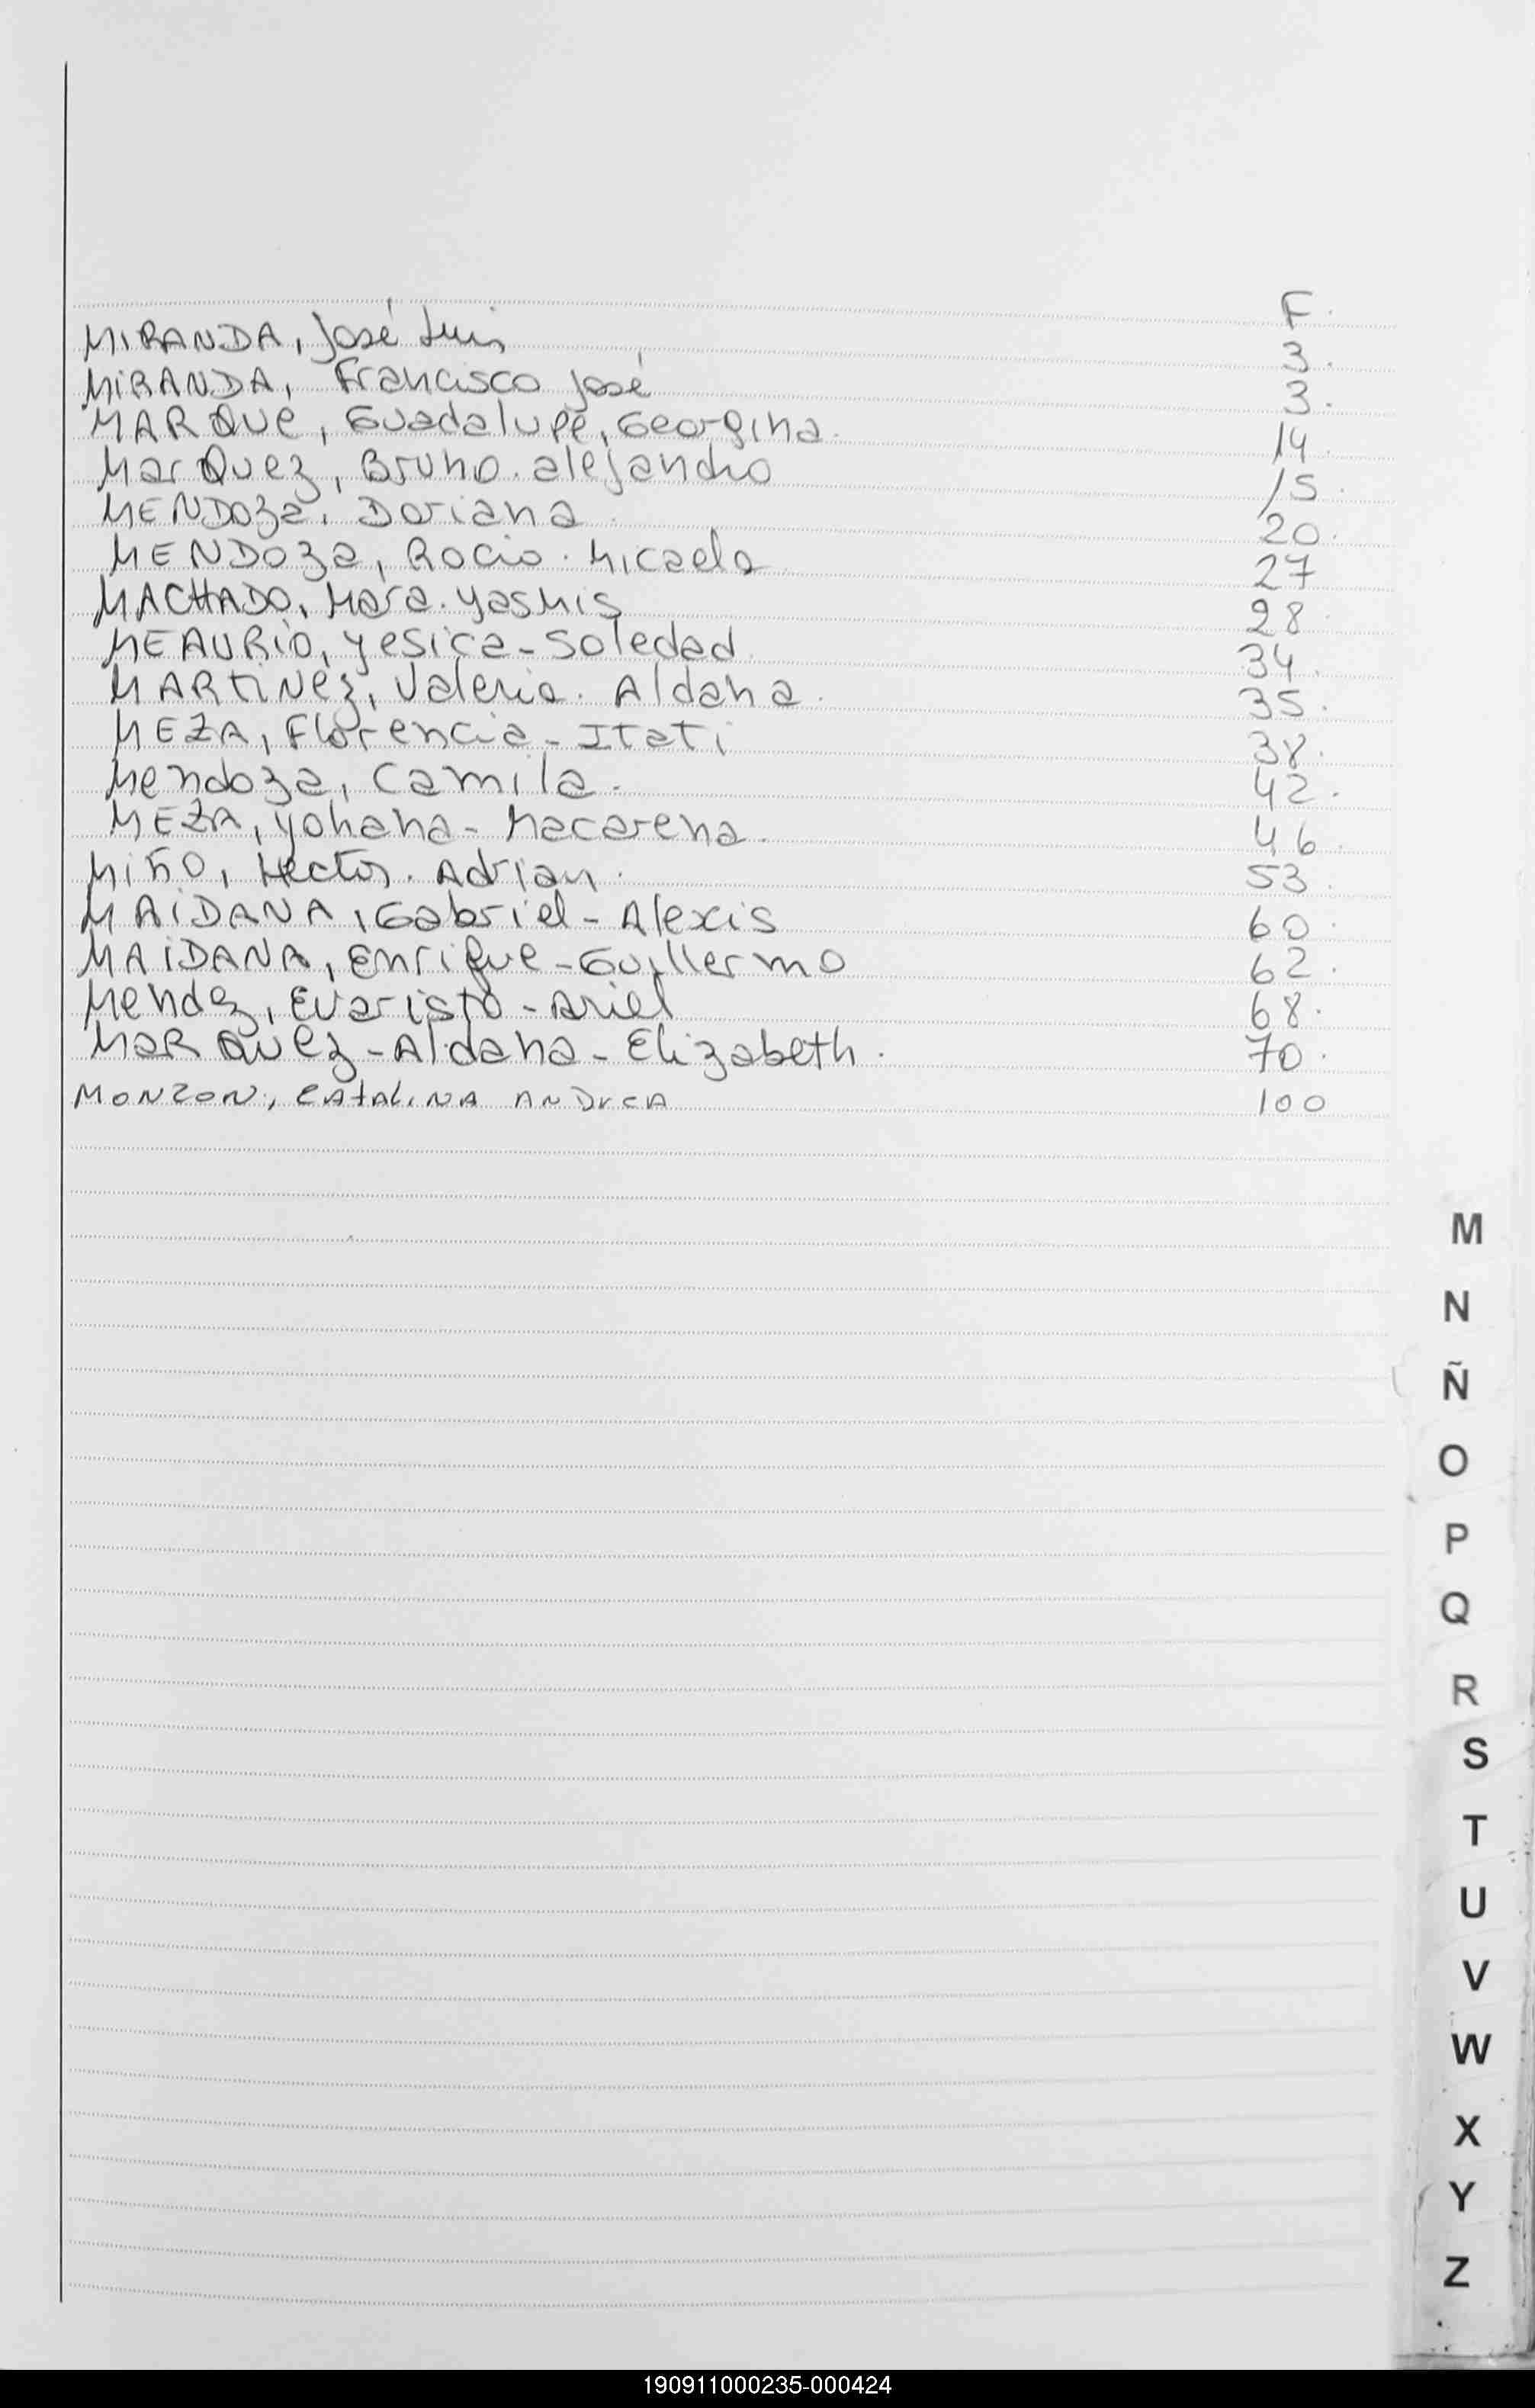 F.
MIRANDA, José Luis 3.
MIRANDA, Francisco José 3.
MARQue, Guadalupe, Georgina. 14.
MarQuez, Bruno. alejandro 15.
MENDOza, Doriana. 20.
MENDOza, Rocio. Micaela. 27
MACHADO, Mara. yasmis 28.
MEAURIO, yesica-Soledad. 34.
MARtiNez, Valeria. Aldana. 35.
MEZA, Florencia-Itati 38.
Mendoza, Camila. 42.
MEZA, yohana-Macarena. 46.
Miño, Hector. Adrian. 53.
MAiDANA, Gabriel-Alexis 60.
MAiDANA, Enrique-Guillermo 62.
Mendez, Evaristo-Ariel 68.
MaRQuez-Aldana-Elizabeth. 70.
MONZON, CAtALiNA ANDREA 100
M
N
Ñ
O
P
Q
R
S
T
U
V
W
X
Y
Z
190911000235-000424